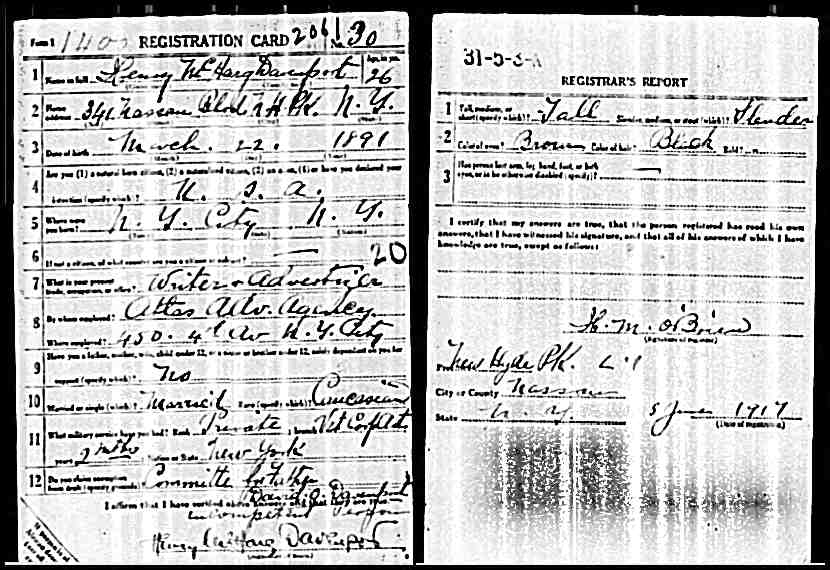 Form 1 REGISTRATION CARD 206 No. 30
1 Name in full Henry McHarg Davenport Age, in yrs. 26
2 Home address 341 Nassau Blvd N.H.PK. N.Y.
3 Date of birth March 22 1891
4 Are you (1) a natural born citizen, (2) a naturalized citizen, (3) an alien, (4) or have you declared your
intention (specify which)? U. S. A.
5 Where were you born? N. Y. City N. Y.
6 If not a citizen, of what country are you a citizen or subject? — 20
7 What is your present trade, occupation, or office? Writer + Advertising
8 By whom employed? Atlas Adv. Agency
Where employed? 450 - 4th Av N. Y. City
9 Have you a father, mother, wife, child under 12, or a sister or brother under 12, solely dependent on you for
support (specify which)? No
10 Married or single (which)? Married Race (specify which)? Caucasian
11 What military service have you had? Rank Private branch
years 2 mths Nation or State New York
12 Do you claim exemption from draft (specify grounds)? Committee for father
David Davenport
I affirm that I have verified above answers and that they are true
incompetent person
Henry McHarg Davenport
31-5-3-A
REGISTRAR'S REPORT
1 Tall, medium, or short (specify which)? Tall Slender, medium, or stout (which)? Slender
2 Color of eyes? Brown Color of hair? Black Bald?
3 Has person lost arm, leg, hand, foot, or both
eyes, or is he otherwise disabled (specify)? —
I certify that my answers are true, that the person registered has read his own
answers, that I have witnessed his signature, and that all of his answers of which I have
knowledge are true, except as follows:
H. M. O'Brien
(Signature of registrar)
Precinct New Hyde PK. L. I.
City or County Nassau
State N. Y. 5 June 1917
(Date of registration)